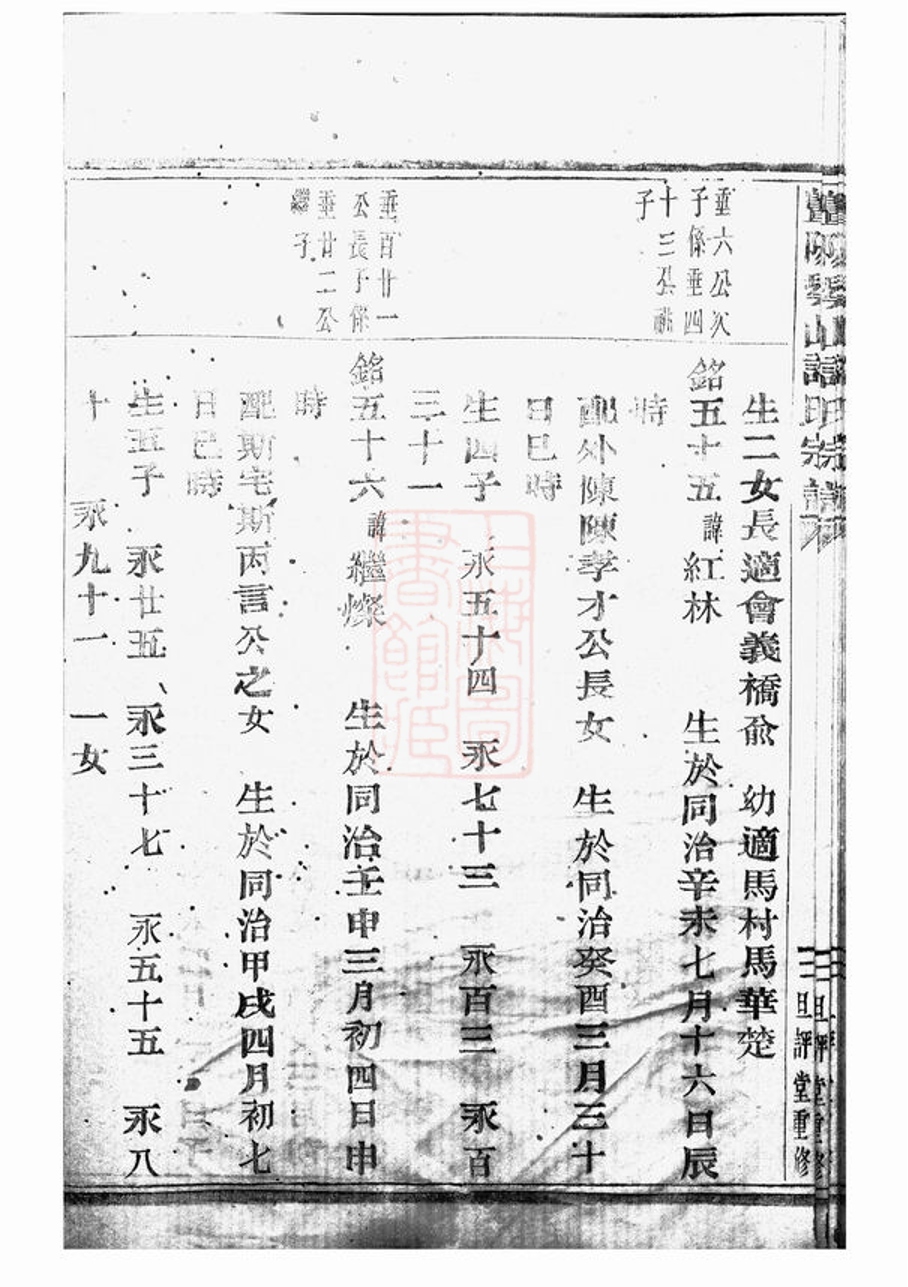 生二女長適會義橋俞　幼適馬村馬華楚
垂六公次
子係垂四
十三公祧
子
銘五十五諱紅林　生於同治辛未七月十六日辰
時
配外陳陳孝才公長女　生於同治癸酉三月三十
日巳時
生四子　永五十四　永七十三　永百三　永百
三十一
垂百廿一
公長子係
垂廿二公
繼子
銘五十六諱繼燦　生於同治壬申三月初四日申
時
配斯宅斯丙言公之女　生於同治甲戌四月初七
日巳時
生五子　永廿五、永三十七　永五十五　永八
十　永九十一　一女
山　宗譜
旦評堂重修
上海圖
書館